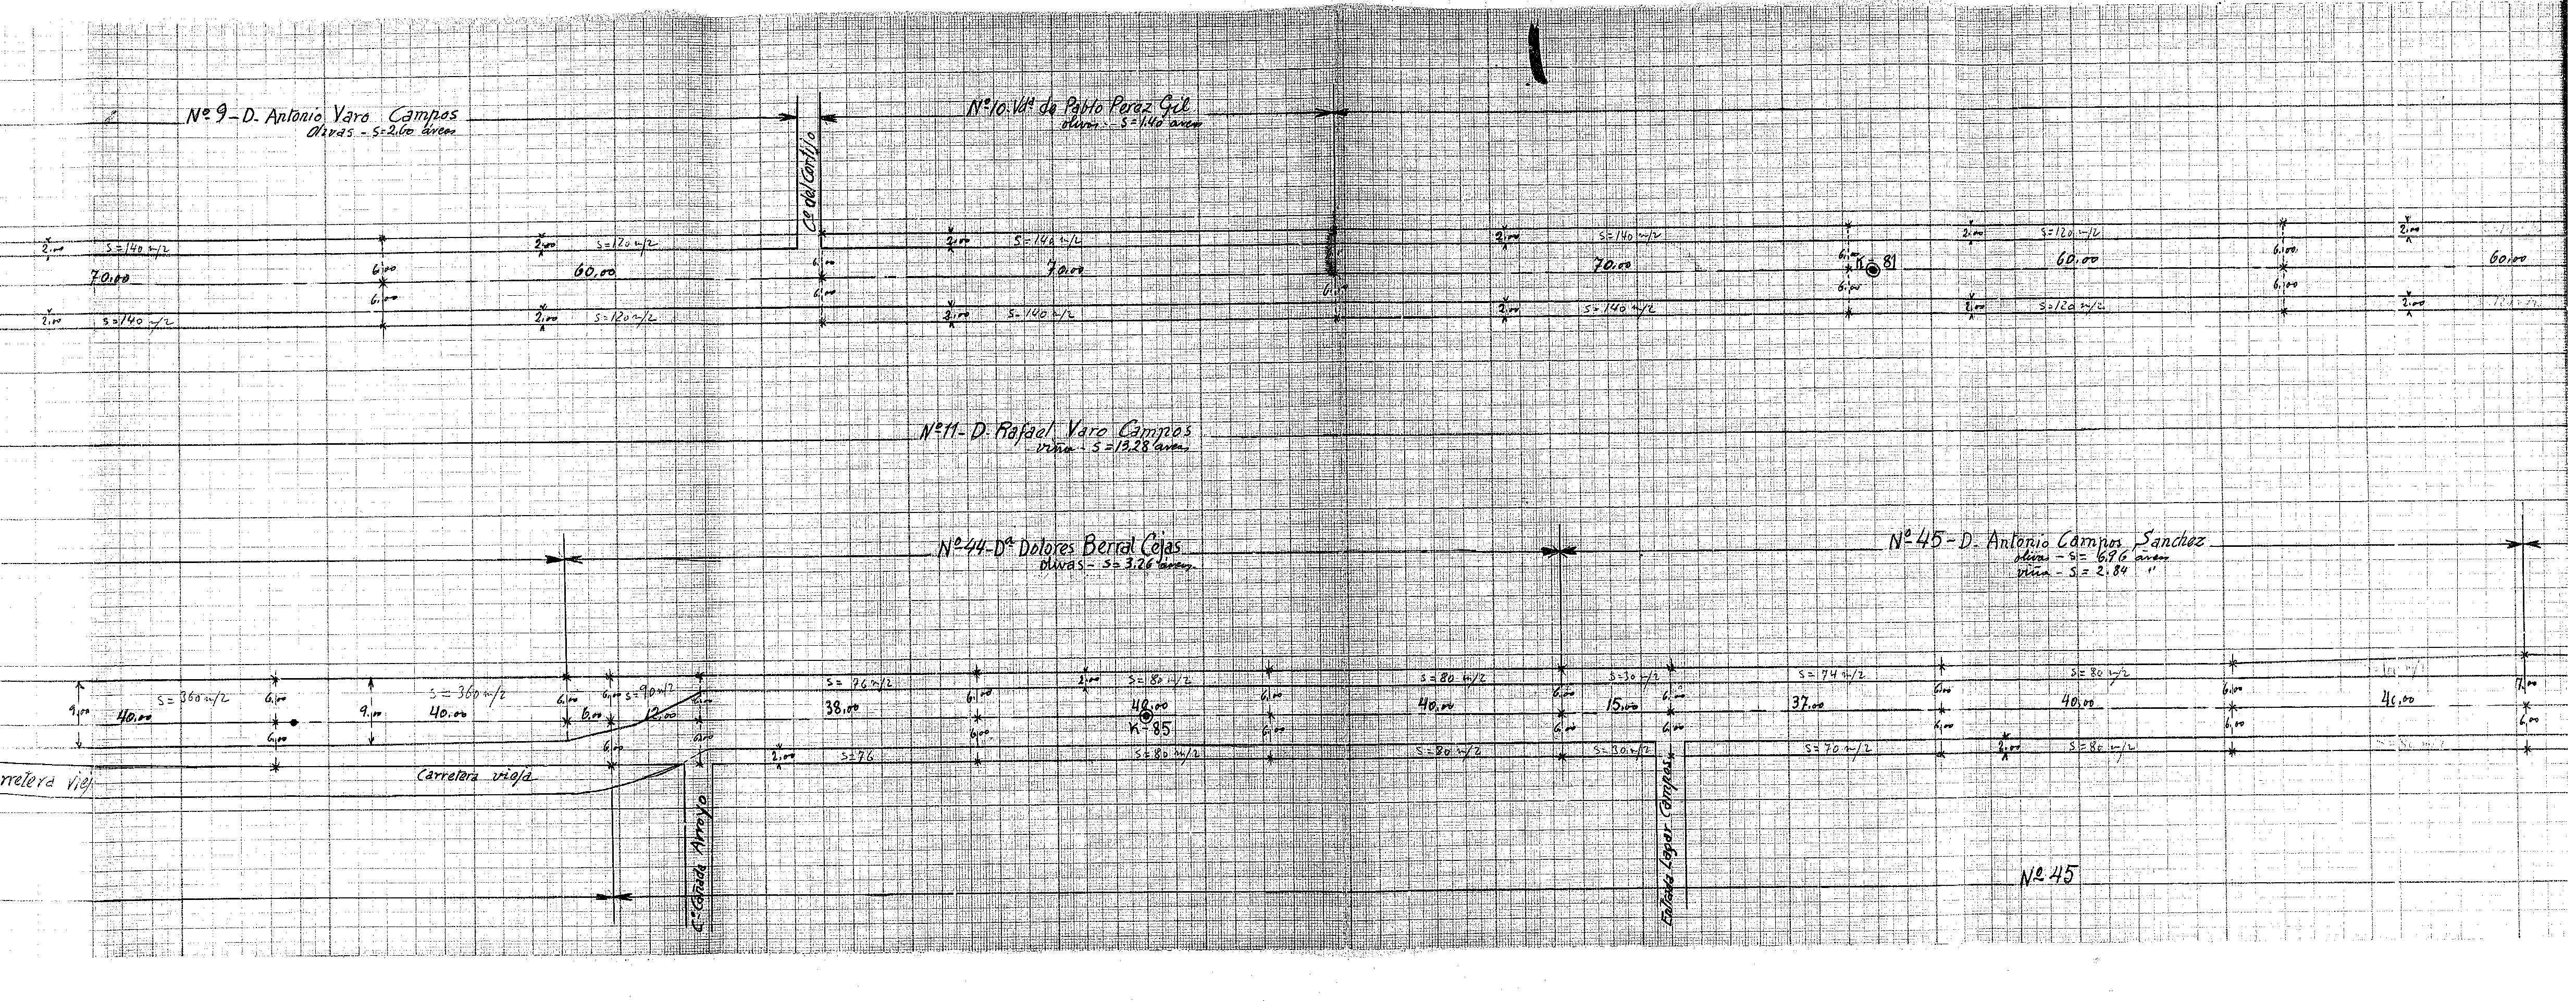 Nº 9 - D. Antonio Varo Campos
Olivas - S=2,60 áreas
Cº del Cortijo
Nº 10 Vdª de Pablo Perez Gil
olivas - S=1,40 áreas
2,00 S=140 m/2 2,00 S=120 m/2 2,00 S=140 m/2 2,00 S=140 m/2 2,00 S=120 m/2 2,00
6,00 6,00 6,00 6,00
70,00 60,00 70,00 70,00 K-81 60,00 60,00
6,00 6,00 6,00 6,00
2,00 S=140 m/2 2,00 S=120 m/2 2,00 S=140 m/2 2,00 S=140 m/2 2,00 S=120 m/2 2,00
Nº 11 - D. Rafael Varo Campos
viña - S=13,28 áreas
Nº 44 - Dª Dolores Berral Cejas
olivas - S=3,26 áreas
Nº 45 - D. Antonio Campos Sanchez
olivas - S= 6,96 áreas
viña - S= 2,84 "
S=360 m/2 6,00 S=360 m/2 6,00 6,00 S=90 m/2 S=76 m/2 6,00 2,00 S=80 m/2 6,00 S=80 m/2 6,00 S=30 m/2 6,00 S=74 m/2 6,00 S=80 m/2 6,00
9,00 40,00 9,00 40,00 6,00 12,00 38,00 40,00 40,00 15,00 37,00 40,00 40,00 7,00
K-85
6,00 6,00 6,00 6,00 6,00 6,00 6,00 6,00 6,00 6,00
2,00 S=76 S=80 m/2 S=80 m/2 S=30 m/2 S=70 m/2 2,00 S=80 m/2
rretera viej
Carretera vieja
Cº Cañada Arroyo
Entrada Lagar Campos
Nº 45